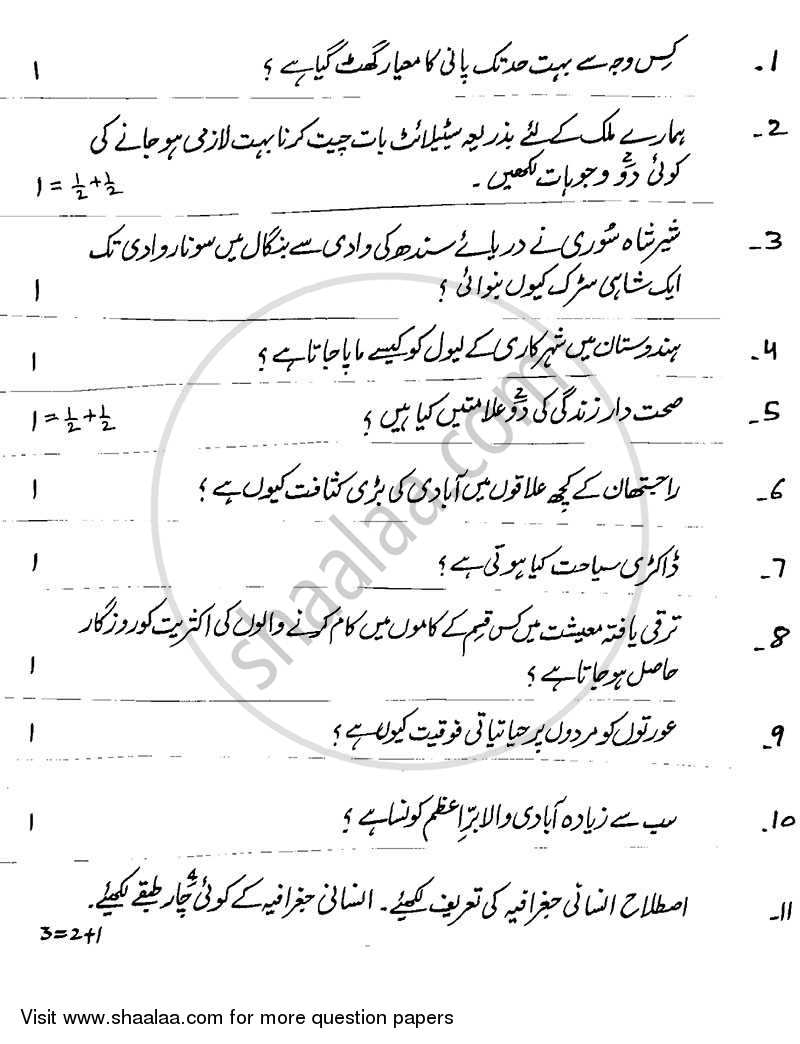 1- کس وجہ سے بہت حد تک پانی کا معیار گھٹ گیا ہے ؟ 1
2- ہمارے ملک کے لئے بذریعہ سیٹیلائٹ بات چیت کرنا بہت لازمی ہو جانے کی
کوئی دو 2 وجوہات لکھیں ۔ 1 = ½ + ½
3- شیر شاہ سُوری نے دریائے سندھ کی وادی سے بنگال میں سونار وادی تک
ایک شاہی سڑک کیوں بنوائی ؟ 1
4- ہندوستان میں شہر کاری کے لیول کو کیسے ماپا جاتا ہے ؟ 1
5- صحت دار زندگی کی دو 2 علامتیں کیا ہیں ؟ 1 = ½ + ½
6- راجستھان کے کچھ علاقوں میں آبادی کی بڑی کثافت کیوں ہے ؟ 1
7- ڈاکٹری سیاحت کیا ہوتی ہے ؟ 1
8- ترقی یافتہ معیشت میں کس قسم کے کاموں میں کام کرنے والوں کی اکثریت کو روزگار
حاصل ہو جاتا ہے ؟ 1
9- عورتوں کو مردوں پر حیاتیاتی فوقیت کیوں ہے ؟ 1
10- سب سے زیادہ آبادی والا برِّاعظم کونسا ہے ؟ 1
11- اصطلاح انسانی جغرافیہ کی تعریف لکھیئے ۔ انسانی جغرافیہ کے کوئی چار 4 طبقے لکھیئے ۔
3=2+1
shaalaa.com
Visit www.shaalaa.com for more question papers